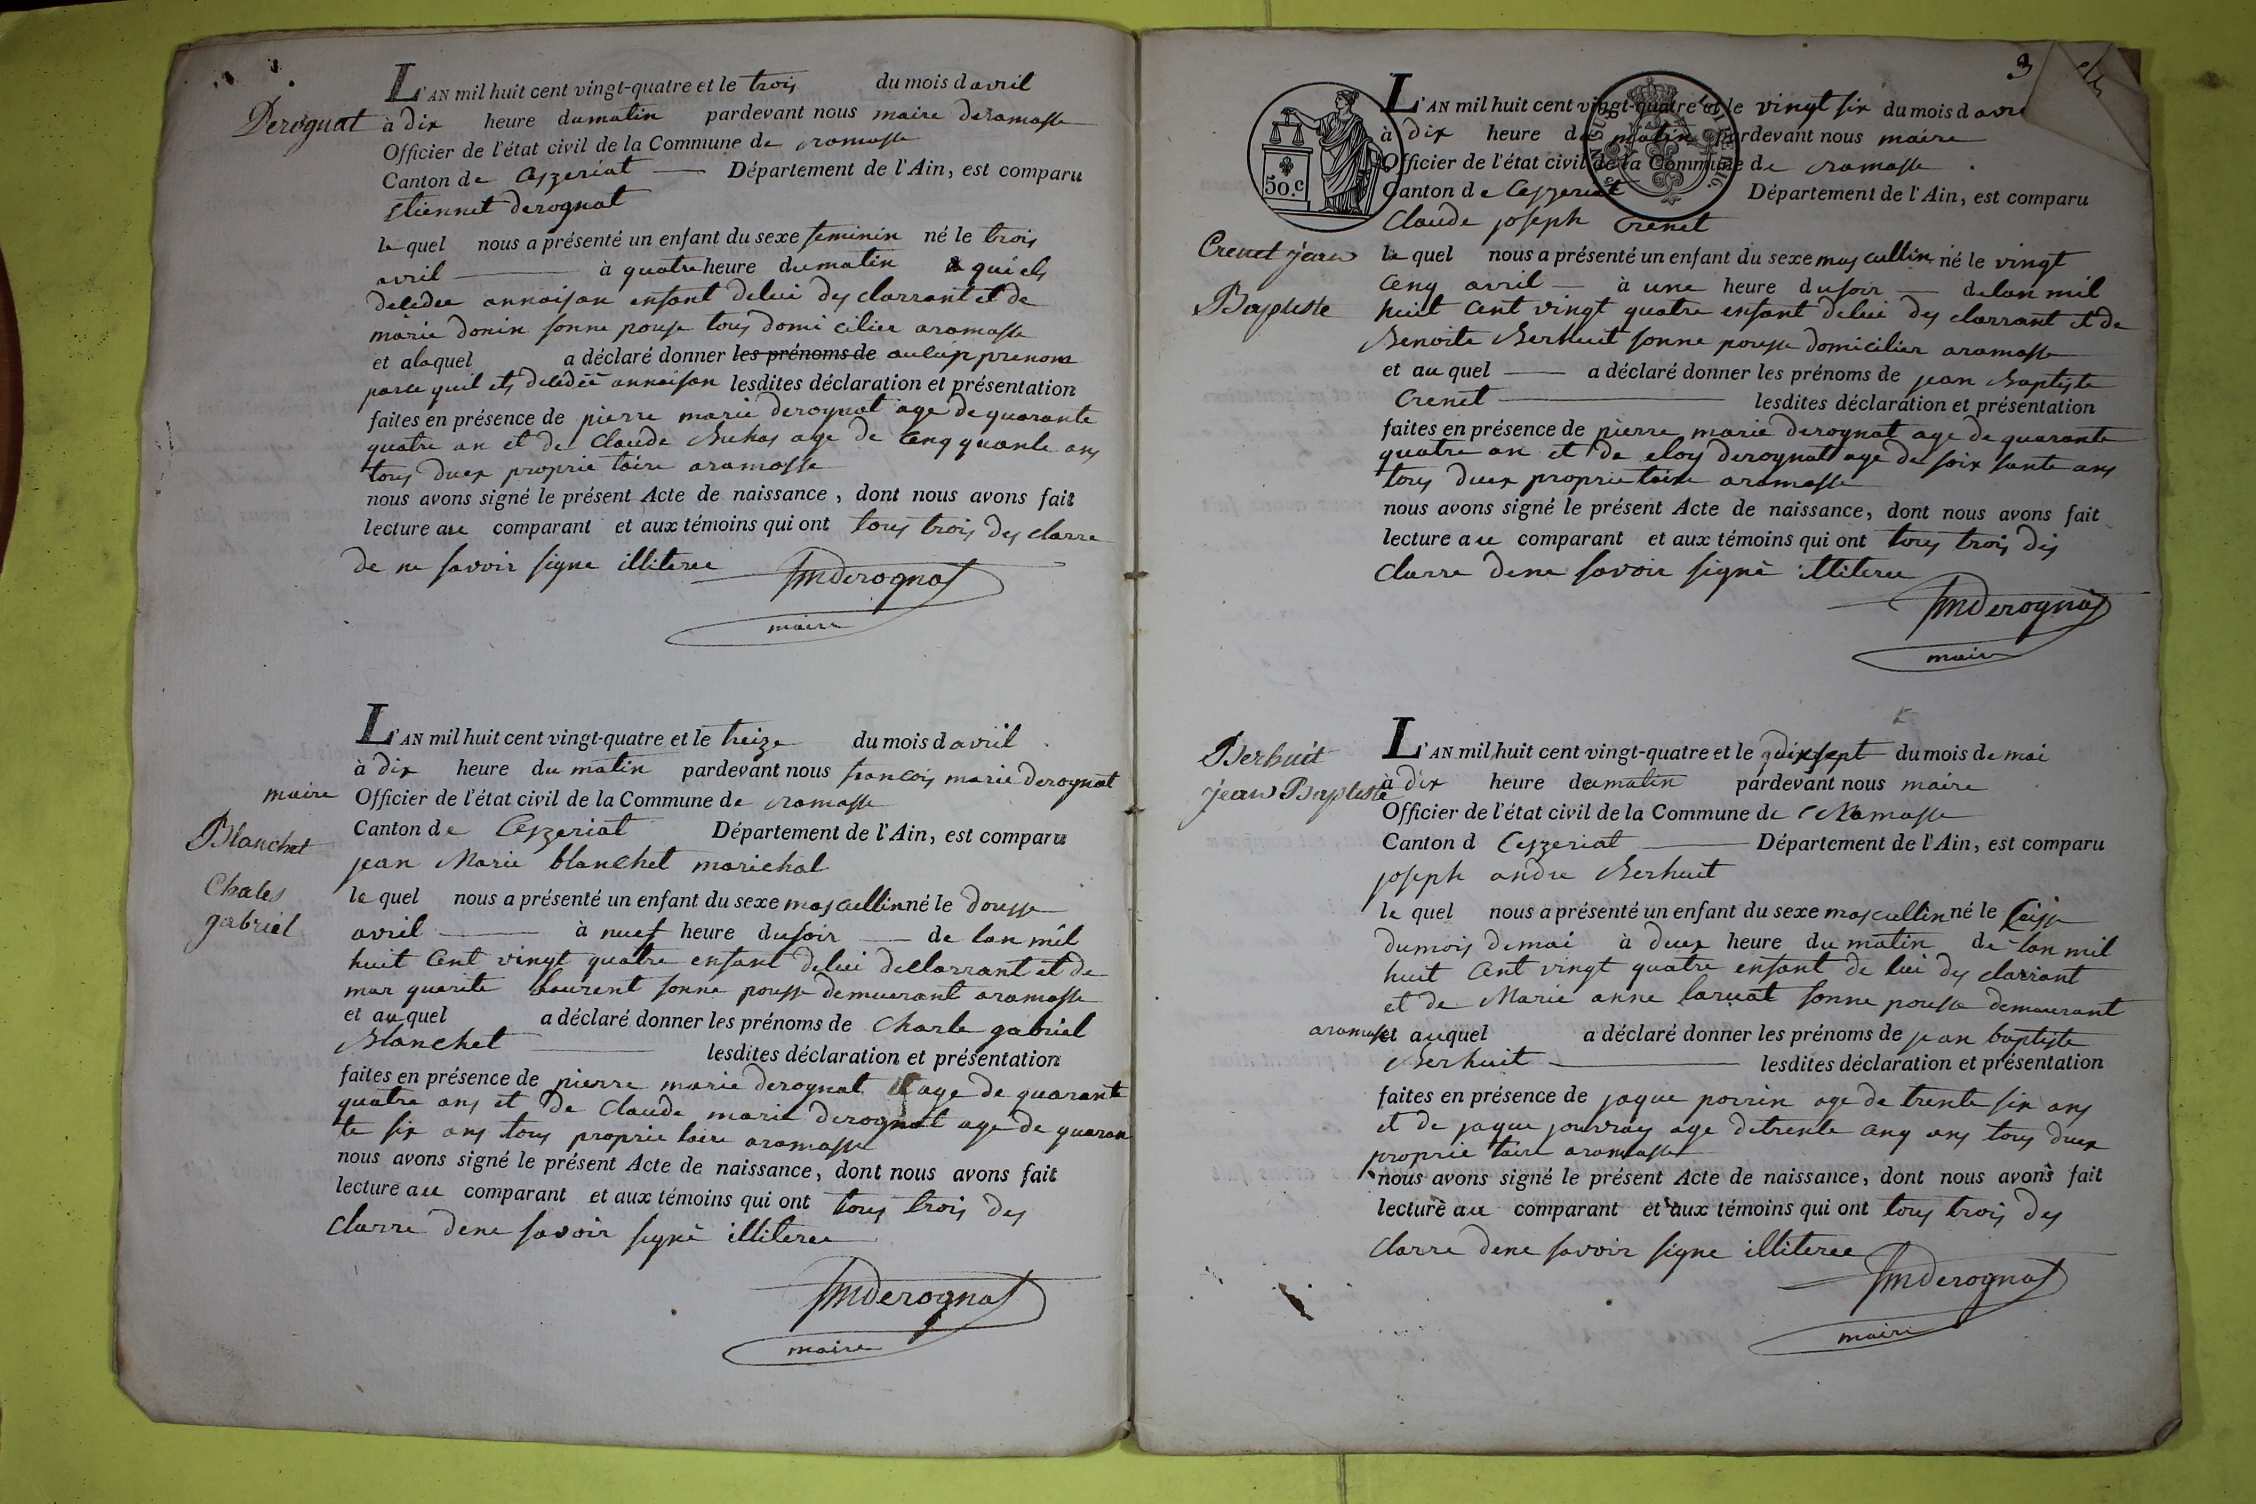 Derognat
L'AN mil huit cent vingt-quatre et le trois du mois d avril
à dix heure du matin pardevant nous maire deramasse
Officier de l'état civil de la Commune de ramasse
Canton de Ceyzeriat Département de l'Ain, est comparu
Etiennet derognat
le quel nous a présenté un enfant du sexe feminin né le trois
avril à quatre heure du matin qui ets
delédée annaisan enfant delui des clarrant et de
marie donin sonne pouse tous domi cilier aramasse
et alaquel a déclaré donner les prénoms de aucun prenom
parce quil ets delédéé annaison lesdites déclaration et présentation
faites en présence de pierre marie derognat age de quarante
quatre an et de Claude Buhas age de cenq quante ans
tous deux proprie taire aramasse
nous avons signé le présent Acte de naissance, dont nous avons fait
lecture au comparant et aux témoins qui ont tous trois des clarre
de ne savoir signe illiteree
fmderognat
maire
L'AN mil huit cent vingt-quatre et le treize du mois d avril
à dix heure du matin pardevant nous francois marie derognat
maire Officier de l'état civil de la Commune de ramasse
Blanchet
Chales
gabriel
Canton de Ceyzeriat Département de l'Ain, est comparu
jean Marie blanchet marichal
le quel nous a présenté un enfant du sexe mascullin né le dousse
avril à neuf heure du soir de lan mil
huit cent vingt quatre enfant delui declarrant et de
mar guerite laurent sonne pousse demeurant aramasse
et au quel a déclaré donner les prénoms de Charle gabriel
Blanchet lesdites déclaration et présentation
faites en présence de pierre marie derognat age de quarante
quatre ans et de Claude marie derognat age de quaran
te six ans tous proprie taire aramasse
nous avons signé le présent Acte de naissance, dont nous avons fait
lecture au comparant et aux témoins qui ont tous trois des
clarre dene savoir signé illiteree
fmderognat
maire
3
50.c
L'AN mil huit cent vingt-quatre et le vingt six du mois d avri
à dix heure du matin pardevant nous maire
Officier de l'état civil de la Commune de ramasse
Canton de Ceyzeriat Département de l'Ain, est comparu
Claude joseph Crenet
Crenet jean
Baptiste
le quel nous a présenté un enfant du sexe mascullin né le vingt
cenq avril à une heure du soir delan mil
huit cent vingt quatre enfant delui des clarrant et de
Benoite Berhuit sonne pousse domicilier aramasse
et au quel a déclaré donner les prénoms de jean Baptiste
Crenet lesdites déclaration et présentation
faites en présence de pierre marie derognat age de quarante
quatre an et de eloy derognat age de soix sante ans
tous deux proprietaire aramasse
nous avons signé le présent Acte de naissance, dont nous avons fait
lecture au comparant et aux témoins qui ont tous trois dis
clarre dene savoir signé illiteree
fmderognat
maire
Berhuit
jean Baptiste
L'AN mil huit cent vingt-quatre et le dix sept du mois de mai
à dix heure du matin pardevant nous maire
Officier de l'état civil de la Commune de Ramasse
Canton d Ceyzeriat Département de l'Ain, est comparu
joseph andre Berhuit
le quel nous a présenté un enfant du sexe mascullin né le
du mois de mai à deux heure du matin de lan mil
huit cent vingt quatre enfant de lui des clarrant
et de Marie anne laruat sonne pousse demeurant
aramasse et auquel a déclaré donner les prénoms de jean baptiste
Berhuit lesdites déclaration et présentation
faites en présence de jaque poirin age de trente six ans
et de jaque jouvray age de trente cinq ans tous deux
proprie taire aramasse
nous avons signé le présent Acte de naissance, dont nous avons fait
lecture au comparant et aux témoins qui ont tous trois des
clarre dene savoir signe illiteree
fmderognat
maire